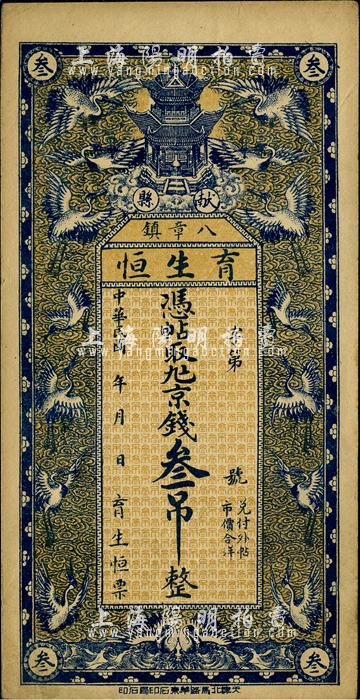 上海陽明拍賣
www.yangmingauction.com
叁
叁
獻縣
八章鎮
育生恒
字第 號
憑帖取九京錢叁吊整
中華民國 年 月 日 育生恒票
兌付外帖
市價合洋
上海陽明拍賣
www.yangmingauction.com
叁
叁
上海陽明拍賣
www.yangmingauction.com
天津北馬路華東石印局石印